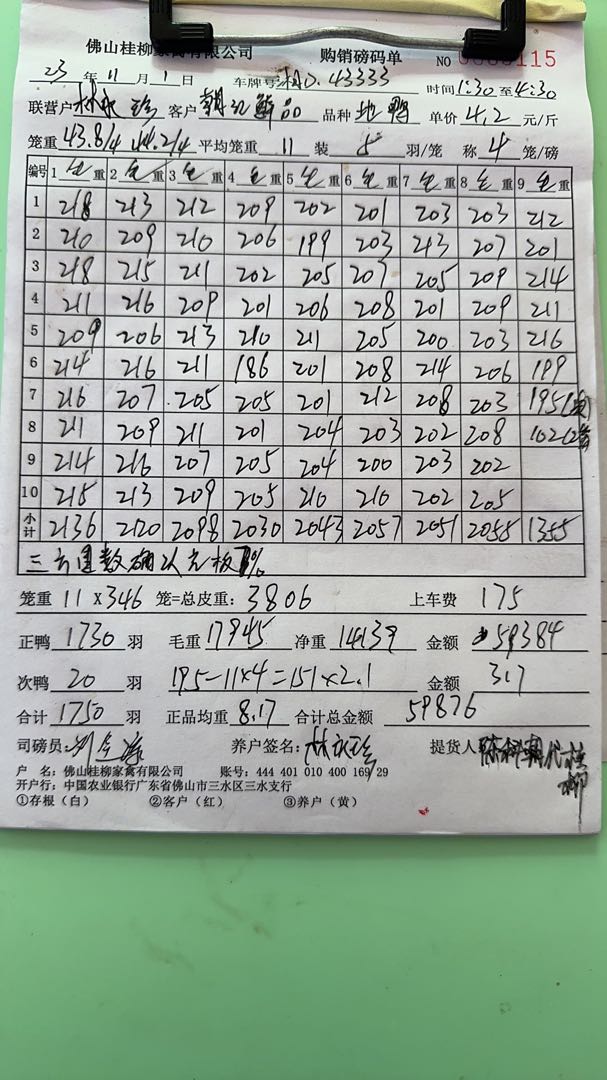 佛山桂柳家禽有限公司 购销磅码单 NO 115
23 年 11 月 1 日 车牌号 43333 时间 1:30 至 4:30
联营户 林永珍 客户 朝记鲜品 品种 地鸭 单价 4.2 元/斤
笼重 43.8/4 44.2/4 平均笼重 11 装 5 羽/笼 称 4 笼/磅
编号 1 毛重 2 毛重 3 毛重 4 毛重 5 毛重 6 毛重 7 毛重 8 毛重 9 毛重
1 218 213 212 209 202 201 203 203 212
2 210 209 210 206 199 203 213 207 201
3 218 215 211 202 205 207 205 209 214
4 211 216 209 201 206 208 201 209 211
5 209 206 213 210 211 205 200 203 216
6 214 216 211 186 201 208 214 206 199
7 216 207 205 205 201 212 208 203 195
8 211 209 211 201 204 203 202 208 102
9 214 216 207 205 204 200 203 202
10 215 213 209 205 210 210 202 205
小计 2136 2120 2098 2030 2043 2057 2051 2055 1355
笼重 11 X 346 笼=总皮重: 3806 上车费 175
正鸭 1730 羽 毛重 17945 净重 14139 金额 59384
次鸭 20 羽 195-11×4=151×2.1 金额 317
合计 1750 羽 正品均重 8.17 合计总金额 59876
司磅员: 养户签名: 林永珍 提货人
户 名: 佛山桂柳家禽有限公司 账号: 444 401 010 400 169 29
开户行: 中国农业银行广东省佛山市三水区三水支行
①存根（白） ②客户（红） ③养户（黄）